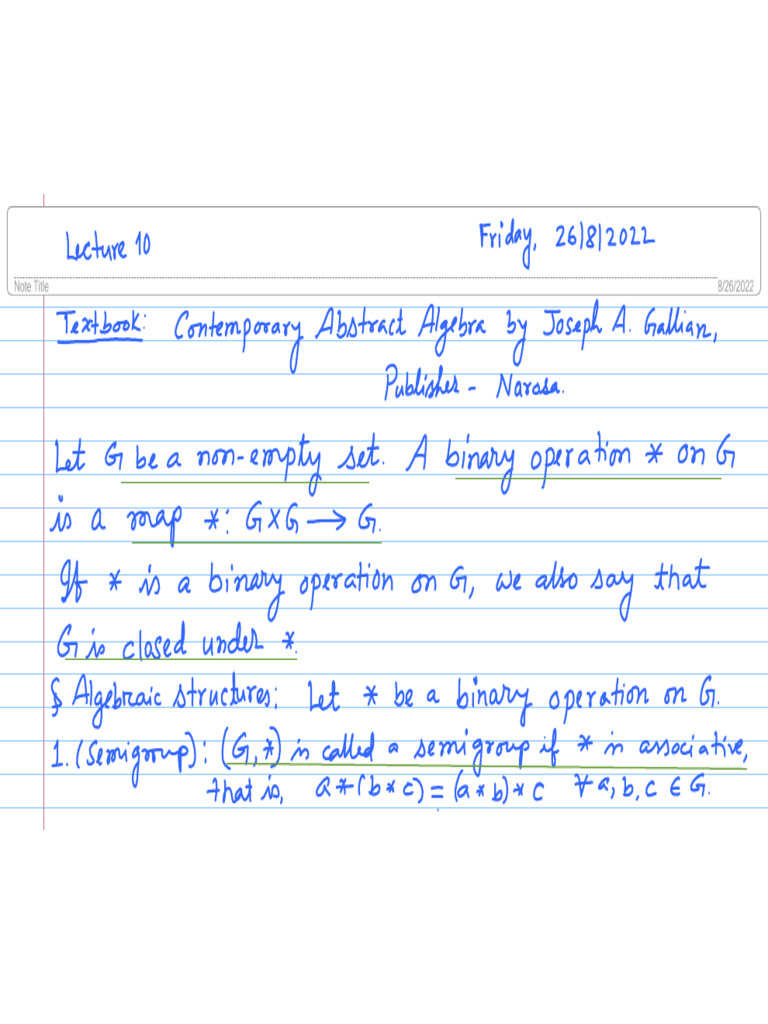 Lecture 10
Friday, 26/8/2022
Note Title
8/26/2022
Textbook: Contemporary Abstract Algebra by Joseph A. Gallian,
Publisher - Narosa.
Let G be a non-empty set. A binary operation * on G
is a map *: G×G → G.
If * is a binary operation on G, we also say that
G is closed under *.
§ Algebraic structures: Let * be a binary operation on G.
1. (Semigroup): (G,*) is called a semigroup if * is associative,
that is, a*(b*c) = (a*b)*c ∀ a,b,c ∈ G.